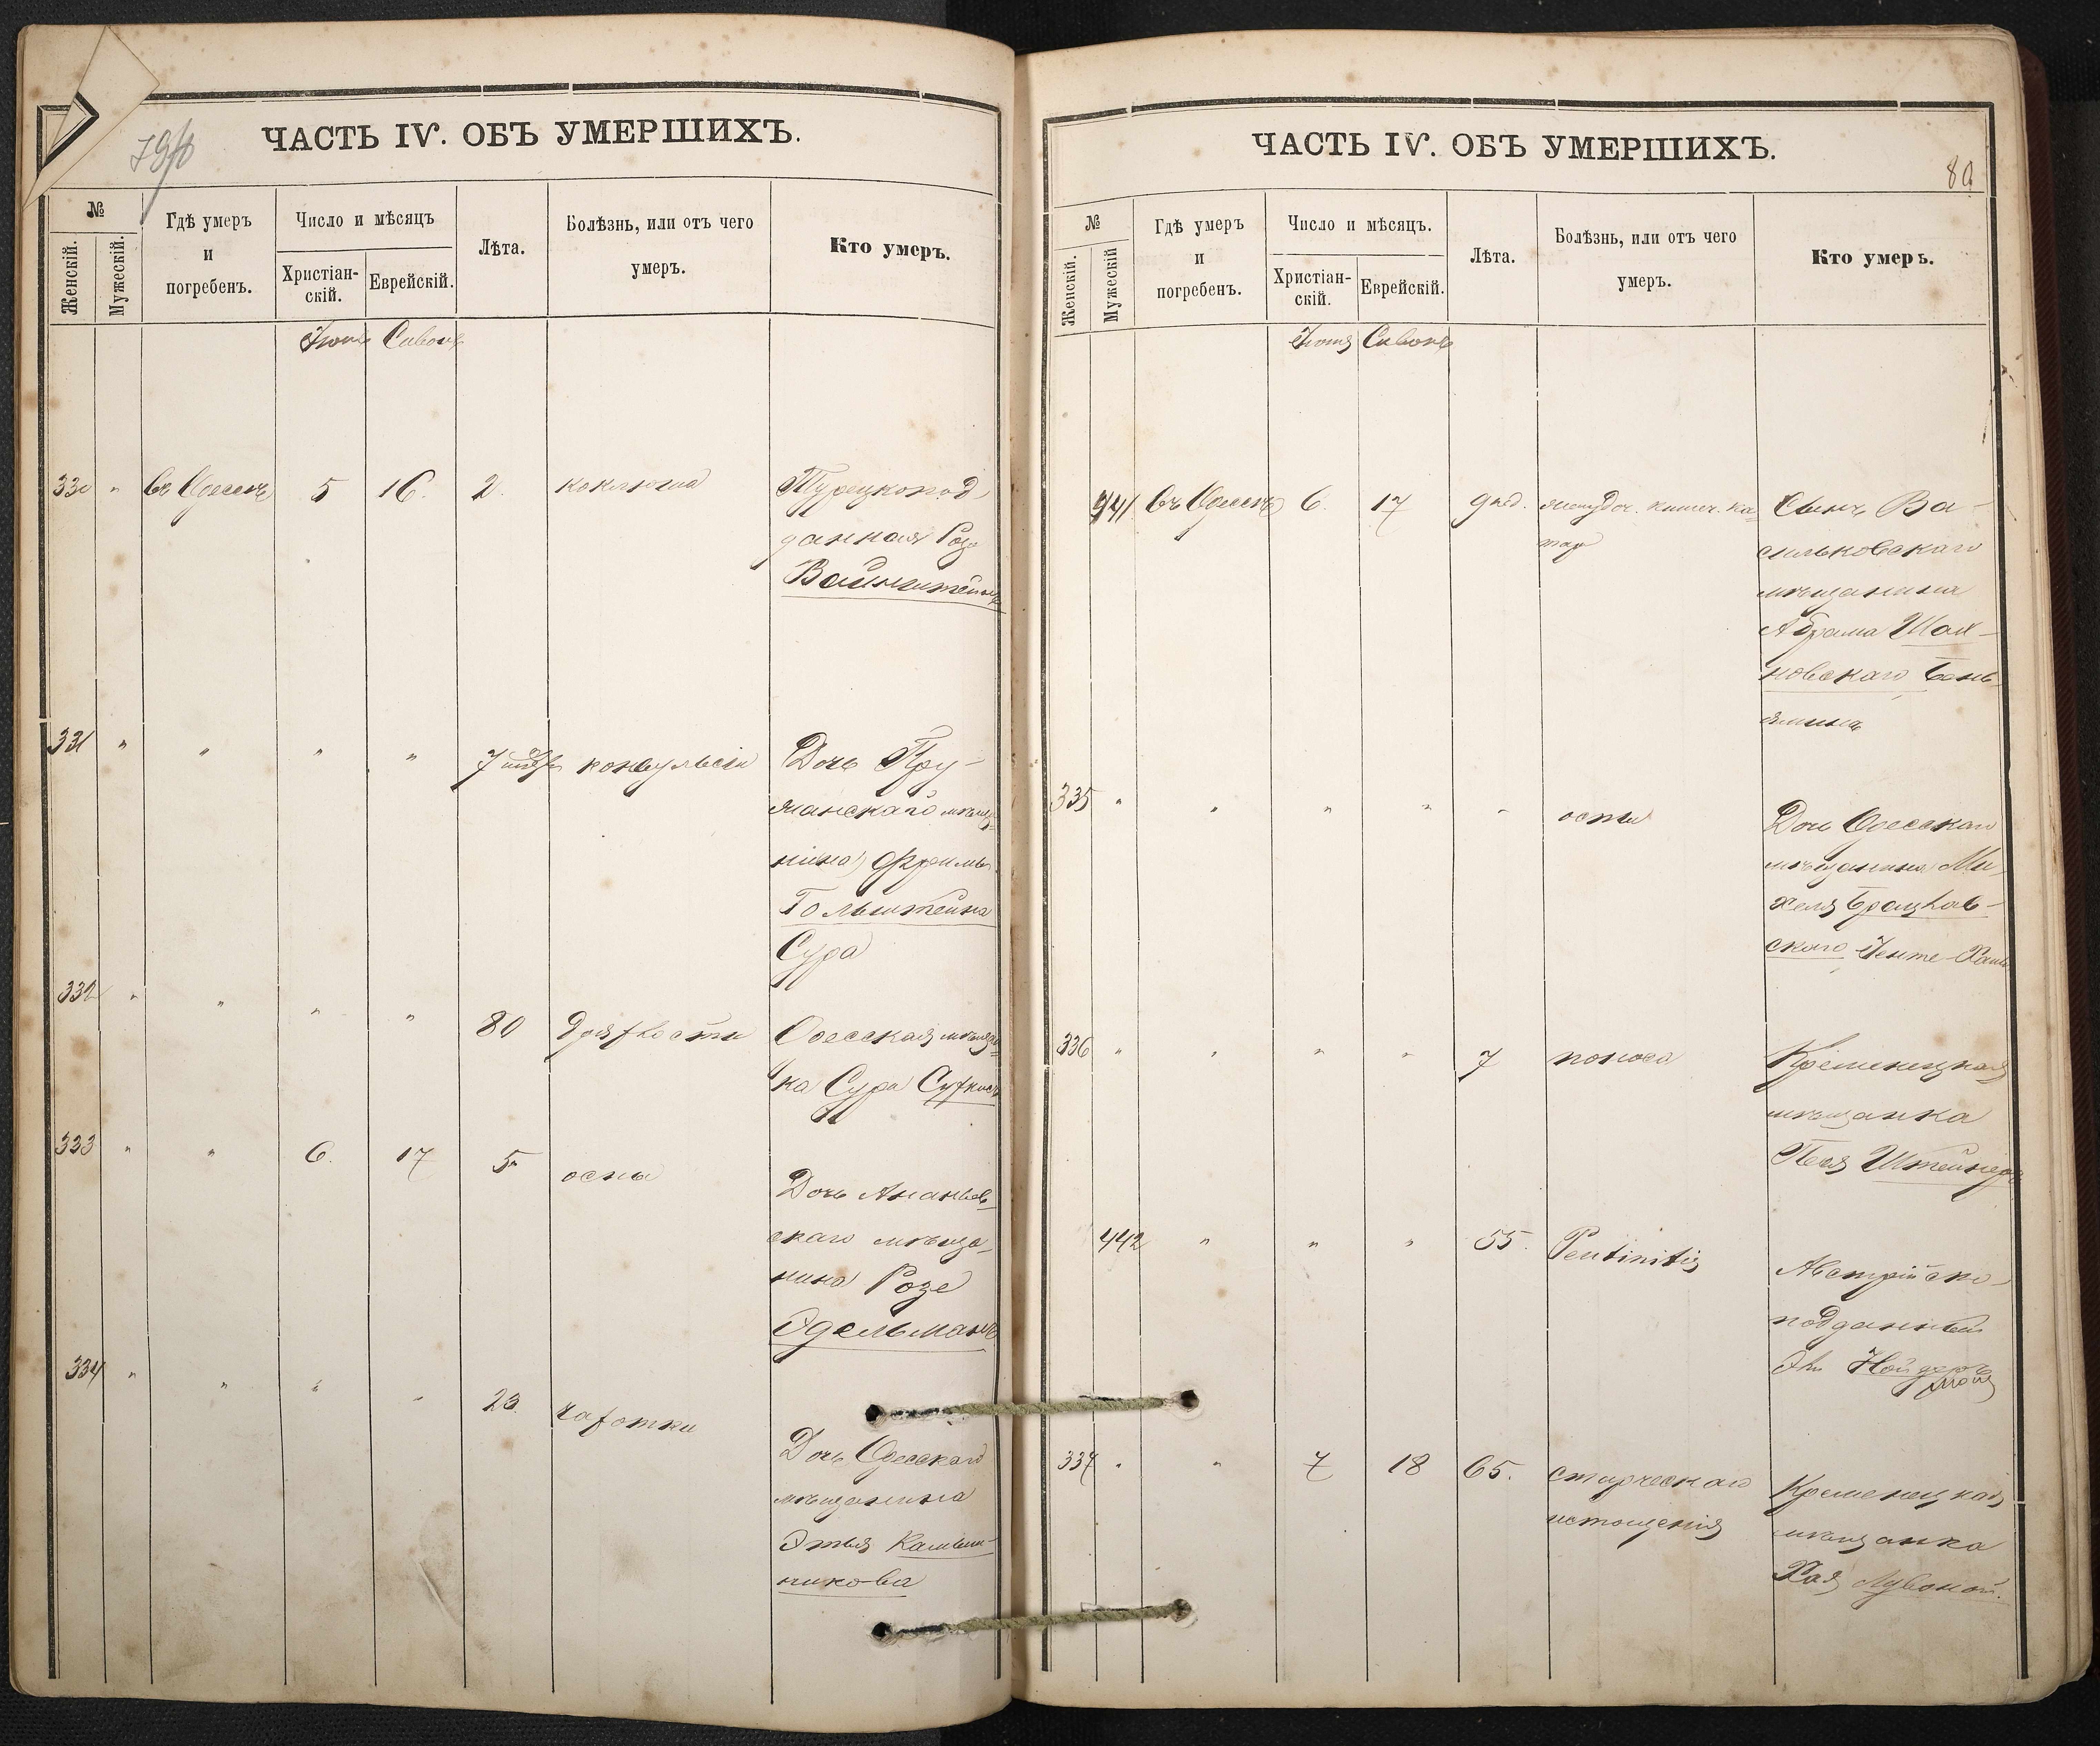 79/б
ЧАСТЬ IV. ОБЪ УМЕРШИХЪ.
№
Женскій.
Мужескій.
Гдѣ умеръ
и
погребенъ.
Число и мѣсяцъ
Христіан-
скій.
Еврейскій.
Лѣта.
Болѣзнь, или отъ чего
умеръ.
Кто умеръ.
Іюня Сивонъ
330 " въ Одессѣ 5 16. 2. коклюша Турецкопод-
данная Роза
Вайнштейнъ
331 " " " " 7 конвульсіи Дочь Пру-
жанскаго мѣща-
нина Фроима
Гольштейна
Сура
332 " " " " 80 дряхлости Одесская мѣщан-
ка Сура
333 " " 6. 17 5 оспы Дочь Ананьев-
скаго мѣща-
нина Розе
Эдельманъ
334 " " " " 23. чахотки Дочь Одесскаго
мѣщанина
Этья Калыш-
никова
ЧАСТЬ IV. ОБЪ УМЕРШИХЪ.
80
№
Женскій.
Мужескій
Гдѣ умеръ
и
погребенъ.
Число и мѣсяцъ.
Христіан-
скій.
Еврейскій.
Лѣта.
Болѣзнь, или отъ чего
умеръ.
Кто умеръ.
Іюня Сивонъ
441 въ Одессѣ 6. 17 9 нед. желудоч. кишеч. ка- Сынъ Ва-
таръ
сильковскаго
мѣщанина
Абрама Шай-
новскаго Бень-
яминъ
335 " " " " " оспы Дочь Одесскаго
мѣщанина Ми-
хеля Брацлав-
скаго Генте-Хана
336 " " " " 7 поноса Кременецкая
мѣщанка
Песя Штейнеръ
442 " " " 55. Австрійско-
подданный
337 " " 7 18 65. старческаго Кременецкая
истощенія
мѣщанка
Хая